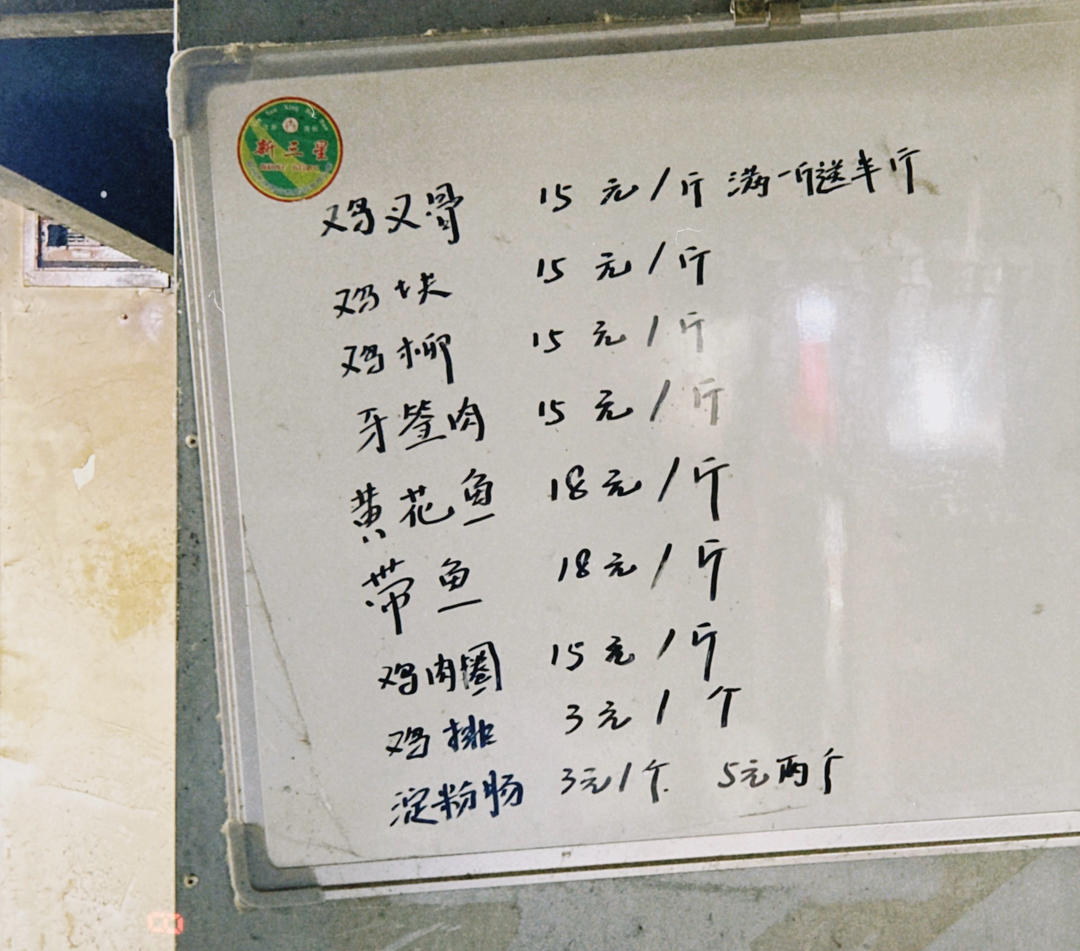 新三星
鸡叉骨 15元/斤 满一斤送半斤
鸡块 15元/斤
鸡柳 15元/斤
牙签肉 15元/斤
黄花鱼 18元/斤
带鱼 18元/斤
鸡肉圈 15元/斤
鸡排 3元/个
淀粉肠 3元/个 5元两个